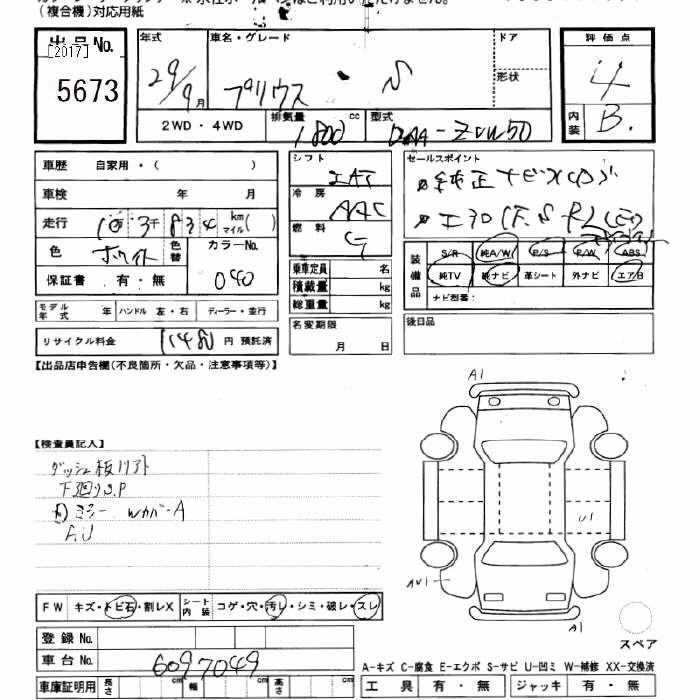 (複合機)対応用紙
出品No.
[2017]
5673
年式 29/9月
車名・グレード プリウス S
ドア
形状
2WD・4WD
排気量 1800 cc
型式 DAA-ZVW50
評価点
4
内装 B.
車歴 自家用・( )
車検 年 月
走行 km マイル( )
色 ホワイト 色替 カラーNo. 040
保証書 有・無
モデル年式 年 ハンドル 左・右 ディーラー・並行
リサイクル料金 円 預託済
シフト
冷房 AAC
燃料 G
乗車定員 名
積載量 kg
総重量 kg
名変期限
月 日
セールスポイント
純正ナビ
エアロ
装備品
S/R 純A/W P/S P/W ABS
純TV 純ナビ 革シート 外ナビ エアB
ナビ型番:
後日品
【出品店申告欄(不良箇所・欠品・注意事項等)】
【検査員記入】
下廻りS.P
Wカバー A
A1
U1
A1
スペア
FW キズ・トビ石・割レX
シート内装 コゲ・穴・汚レ・シミ・破レ・スレ
登録No.
車台No. 6097049
車庫証明用 長さ cm 幅 cm 高さ cm
A-キズ C-腐食 E-エクボ S-サビ U-凹ミ W-補修 XX-交換済
工具 有・無 ジャッキ 有・無